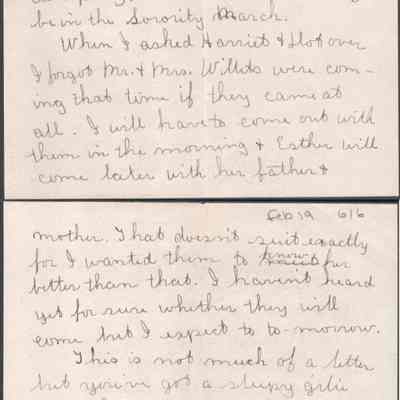 be in the Sorority March.
When I asked Harriet & Dot over
I forgot Mr. & Mrs. Willits were com-
ing that time if they came at
all. I will have to come out with
them in the morning & Esther will
come later with her father &
Feb 19 6/6
mother. That doesn't suit exactly
for I wanted them to know her
better than that. I haven't heard
yet for sure whether they will
come but I expect to to-morrow.
This is not much of a letter
but you've got a sleepy girlie